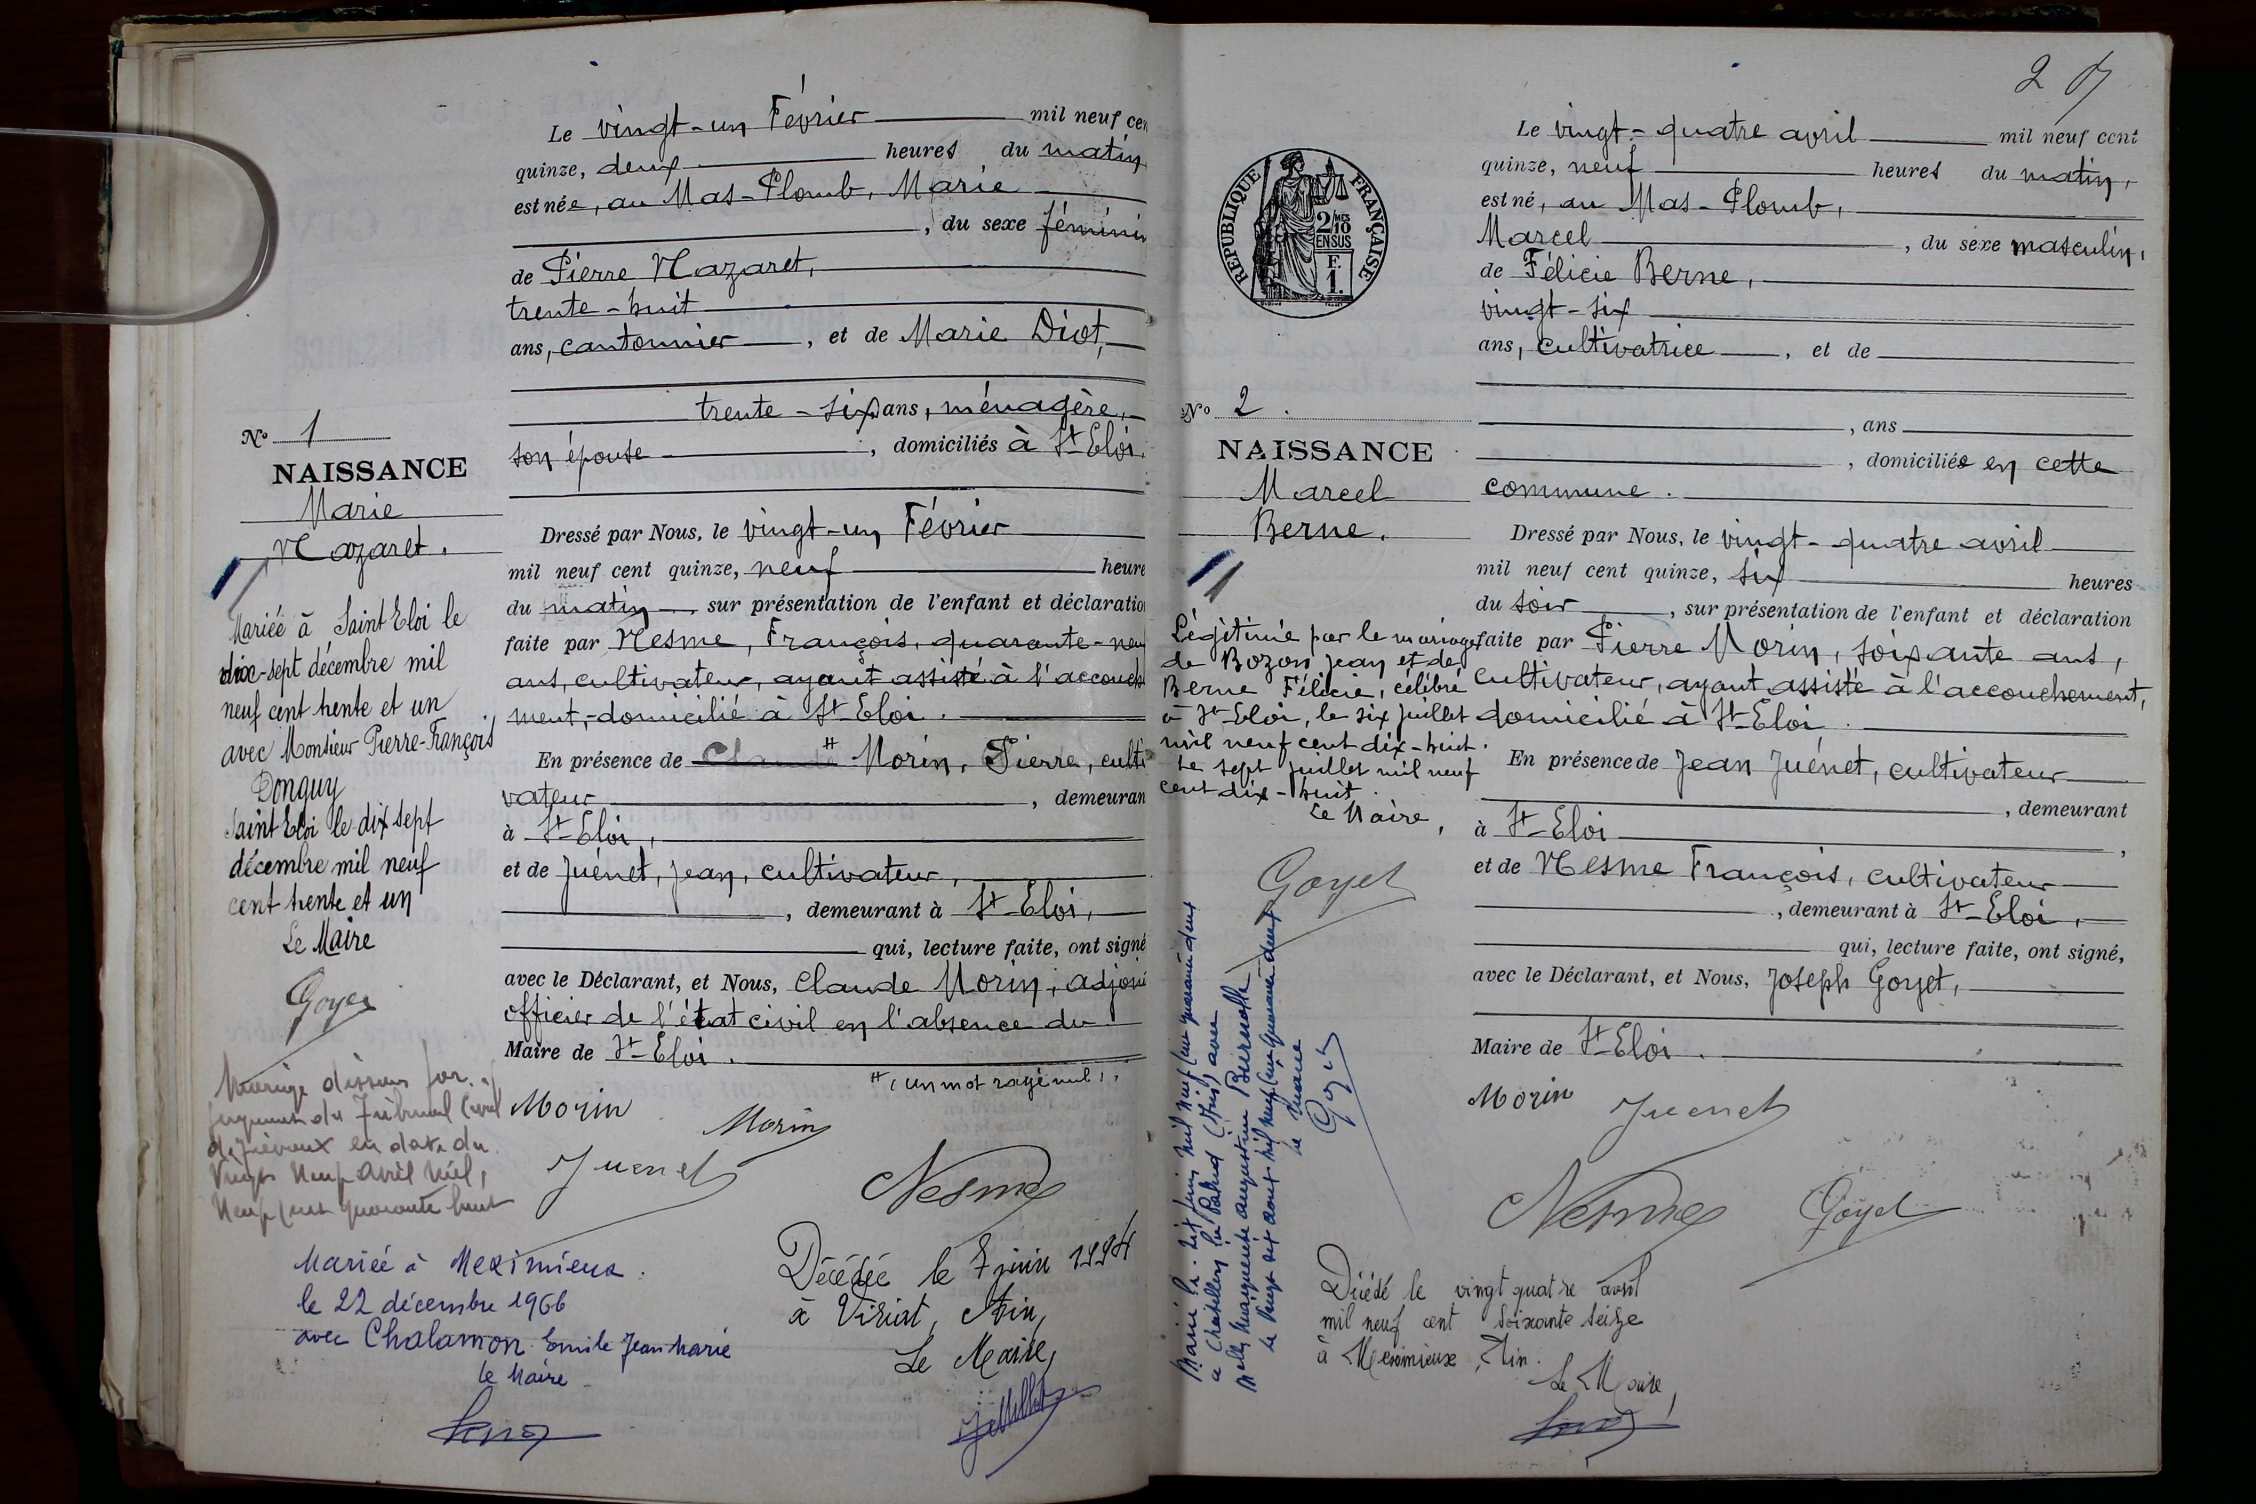 Le vingt-un Février mil neuf cen
quinze, deux heures du matin
est née, au Mas-Plomb, Marie
, du sexe féminin
de Pierre Nazaret,
trente-huit
ans, cantonnier, et de Marie Diot,
trente-six ans, ménagère,
son épouse, domiciliés à St Eloi.
N° 1
NAISSANCE
Marie
Nazaret.
Dressé par Nous, le vingt-un Février
mil neuf cent quinze, neuf heure
du matin, sur présentation de l'enfant et déclaration
faite par Nesme, François, quarante-neuf
ans, cultivateur, ayant assisté à l'accouche
ment, domicilié à St Eloi.
En présence de Claude # Morin, Pierre, culti
vateur, demeuran
à St Eloi,
et de Juénet, Jean, cultivateur,
, demeurant à St Eloi,
qui, lecture faite, ont signé
avec le Déclarant, et Nous, Claude Morin, adjoint
officier de l'état civil en l'absence du
Maire de St Eloi.
# (un mot rayé nul).
Morin
Morin
Juenet
Nesme
Mariée à Saint Eloi le
dix-sept décembre mil
neuf cent trente et un
avec Monsieur Pierre-François
Donguy
Saint Eloi le dix sept
décembre mil neuf
cent trente et un
Le Maire
Goyet
Mariage dissous par
jugement du Tribunal Civil
de Trévoux en date du
Vingt Neuf Avril Mil,
Neuf Cent quarante huit
Mariée à Meximieux.
le 22 décembre 1966
avec Chalamon Emile Jean Marie
le Maire
Décédée le 7 juin 1994
à Viriat, Ain,
Le Maire,
2
Le vingt-quatre avril mil neuf cent
quinze, neuf heures du matin,
est né, au Mas-Plomb,
Marcel, du sexe masculin,
de Félicie Berne,
vingt-six
ans, cultivatrice, et de
, ans
, domiciliée en cette
commune.
RÉPUBLIQUE FRANÇAISE
2/MES
10
EN SUS
F.
1.
N° 2.
NAISSANCE
Marcel
Berne.
Dressé par Nous, le vingt-quatre avril
mil neuf cent quinze, six heures
du soir, sur présentation de l'enfant et déclaration
faite par Pierre Morin, soixante ans,
cultivateur, ayant assisté à l'accouchement,
domicilié à St Eloi.
En présence de Jean Juénet, cultivateur
, demeurant
à St Eloi,
et de Nesme François, cultivateur
, demeurant à St Eloi,
qui, lecture faite, ont signé,
avec le Déclarant, et Nous, Joseph Goyet,
Maire de St Eloi.
Morin
Juenet
Nesme
Goyet
Légitimé par le mariage
de Bozon Jean et de
Berne Félicie, célébré
à St Eloi, le six juillet
mil neuf cent dix-huit.
Le sept juillet mil neuf
cent dix-huit.
Le Maire,
Goyet
Marié le dix juin mil neuf cent quarante deux
a Chatillon la Palud (Ain) avec
Marguerite Augustine
Le Vingt six août mil neuf cent quarante deux
Le Maire
Goyet
Décédé le vingt quatre avril
mil neuf cent soixante seize
à Meximieux, Ain.
Le Maire,